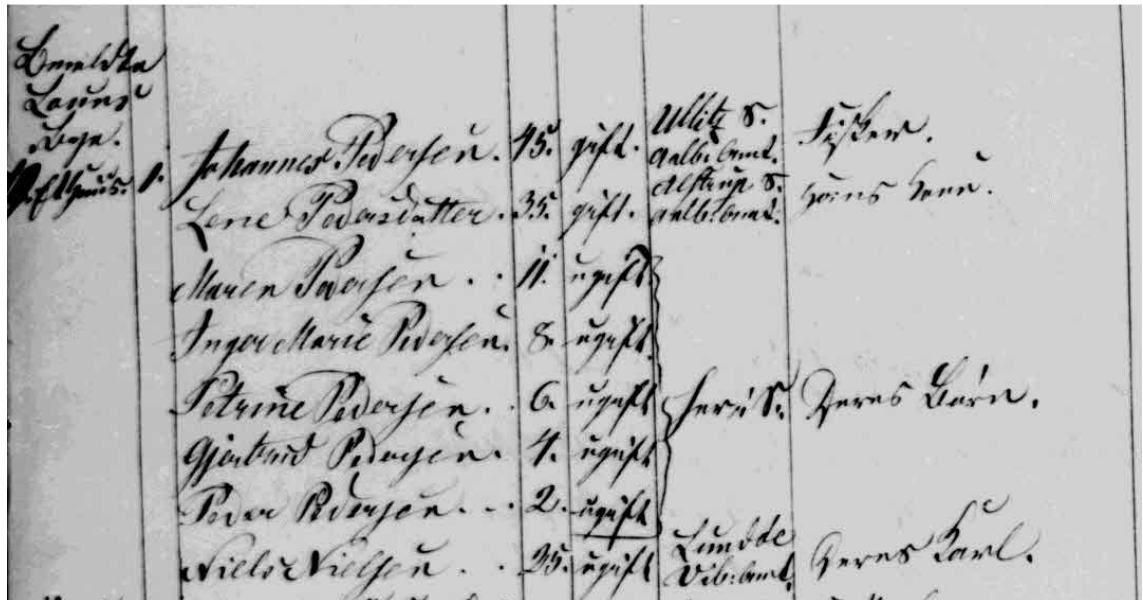 Johannes Pedersen. 45. gift. Ullitz S. Aalb: Amt. Fisker.
Lene Pedersdatter. 35. gift. Alstrup S. Aalb: Amt. hans Kone.
Maren Pedersen . . 11. ugift
Inger Marie Pedersen. 8. ugift
Petrine Pedersen. . 6. ugift heri S. Deres Börn.
Gjertrud Pedersen. 4. ugift
Peder Pedersen. . . 2. ugift
Niels Nielsen . . 25. ugift Vib: Amt. Deres Karl.